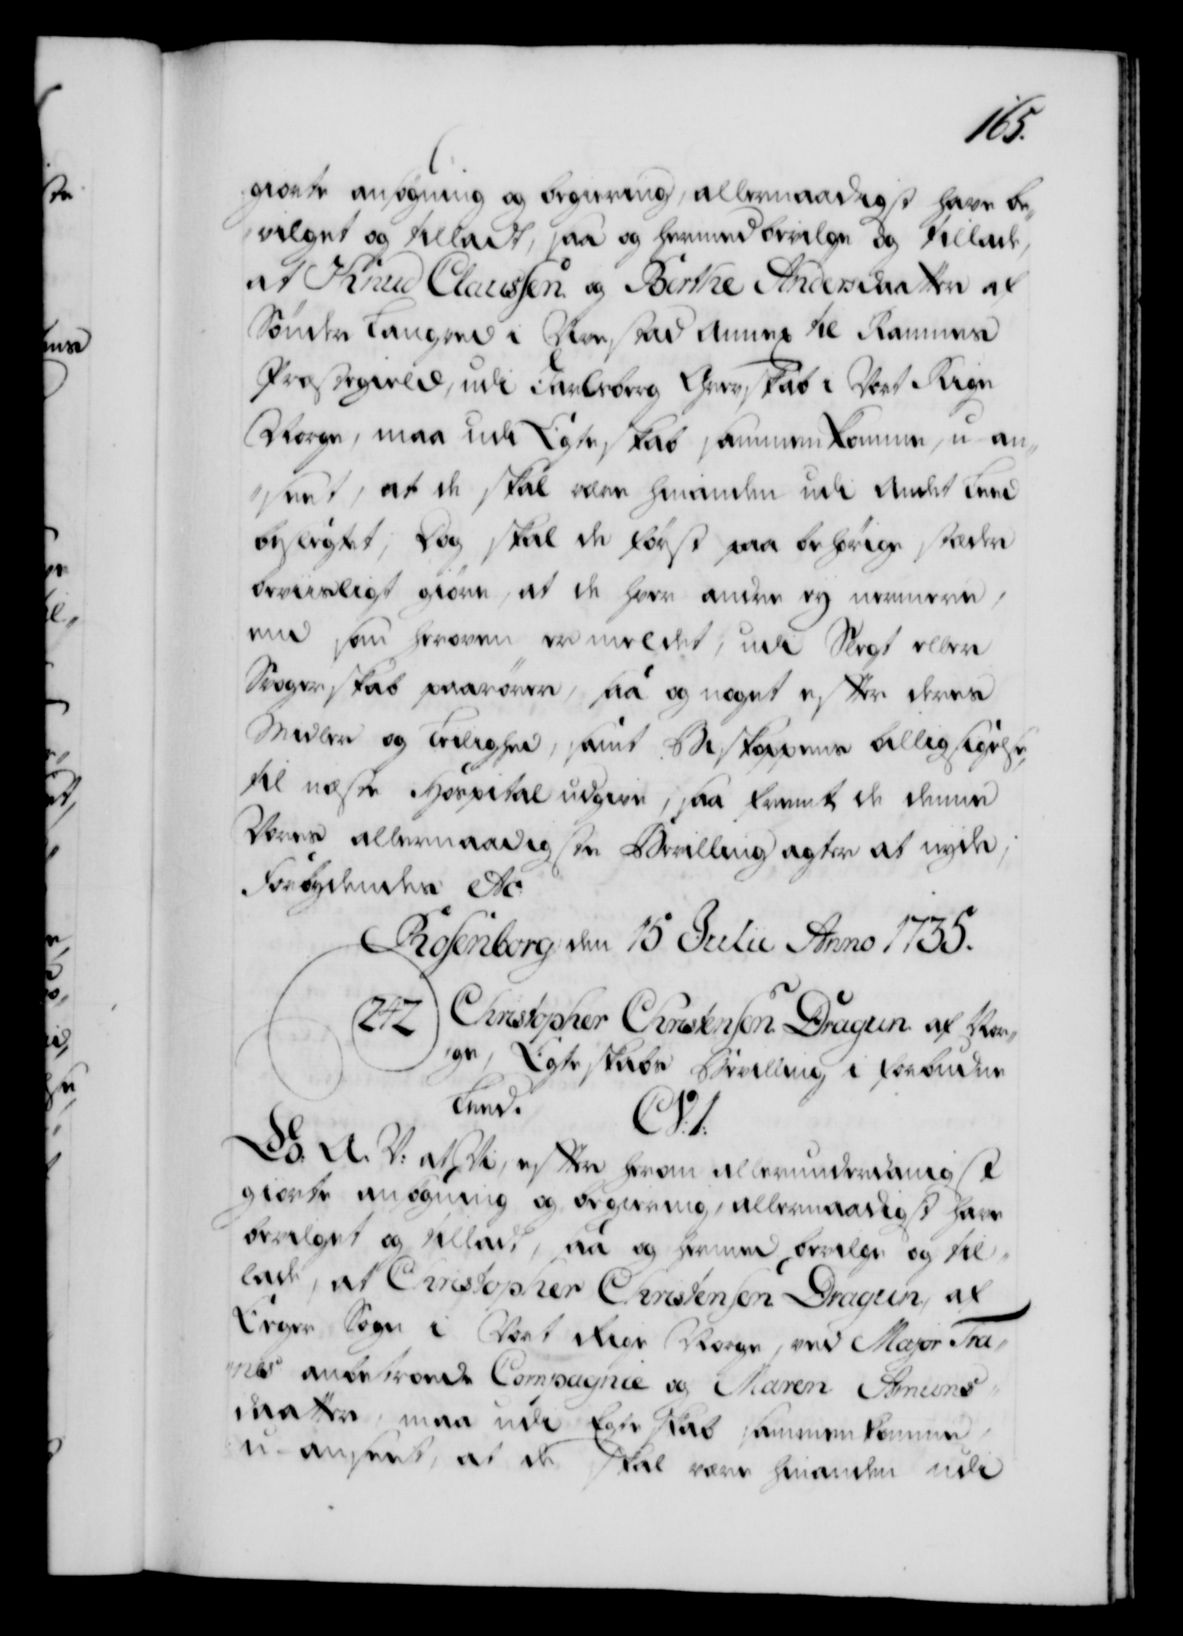 165.
giorte ansøgning og begiering, allernaadigst have be-
vilget og tilladt, saa og hermed bevilge og tillade,
at Knud Claussen og Birthe Andersdaatter af
Sønder Langved i Annex til Ramnes
Præstegield, udi Jarlsberg Grevskab i Vort Rige
Norge, maa udi Egteskab sammenkomme, u-an-
seet, at de skal være hinanden udi Andet Leed
beslegtet; Dog skal de først paa behørige stæder
beviisligt giøre, at de hver andre ey nermere,
end som herover er meldet, udi Slegt eller
Svogerskab paarører, saa og noget efter deres
Midler og Leilighed, samt Biskoppens billigsigelse,
til næste Hospital udgive, saa fremt de denne
Vores allernaadigste Bevilling agter at nyde;
Forbydendes &c
Rosenborg den 15 Julii Anno 1735.
242 Christopher Christensen Dragun af Nor-
ge, Egteskabs Bevilling i forbudne
Leed. C V. 1.
G. A. V: at Vi, efter herom allerunderdanigst
giorte ansøgning og begiering, allernaadigst have
bevilget og tilladt, saa og hermed bevilge og til-
lade, at Christopher Christensen Dragun, af
Sogn i Vort Rige Norge, ved Major Tra-
nes anbetroede Compagnie og Maren Amuns-
daatter, maa udi Egteskab sammenkomme,
u-anseet, at de skal være hinanden udi